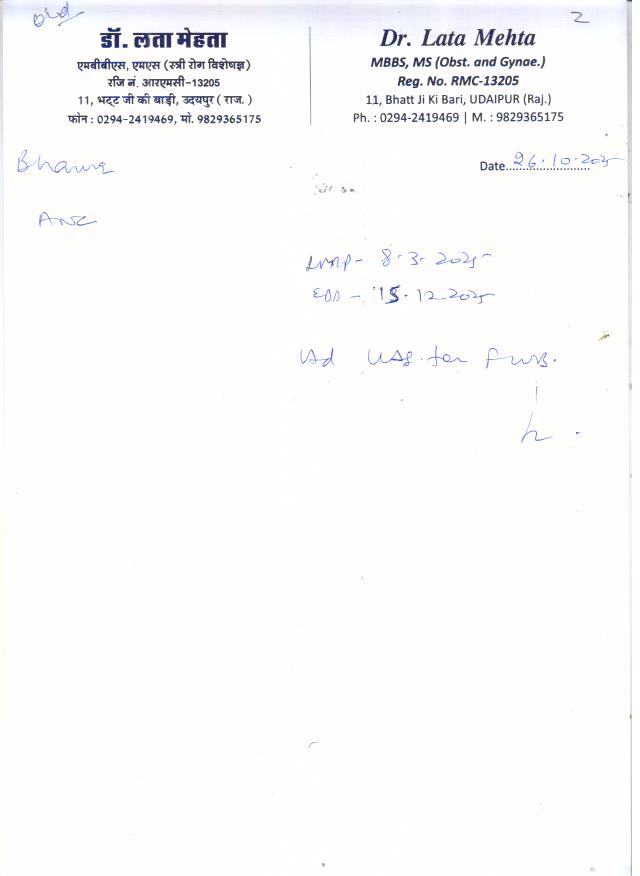 Old
2
डॉ. लता मेहता
एमबीबीएस, एमएस (स्त्री रोग विशेषज्ञ)
रजि नं. आरएमसी-13205
11, भट्ट जी की बाड़ी, उदयपुर ( राज. )
फोन : 0294-2419469, मो. 9829365175
Dr. Lata Mehta
MBBS, MS (Obst. and Gynae.)
Reg. No. RMC-13205
11, Bhatt Ji Ki Bari, UDAIPUR (Raj.)
Ph. : 0294-2419469 | M. : 9829365175
Date 26.10.2025
ANC
LMP - 8.3.2025
EDD - 15.12.2025
Ad USG for FWB.